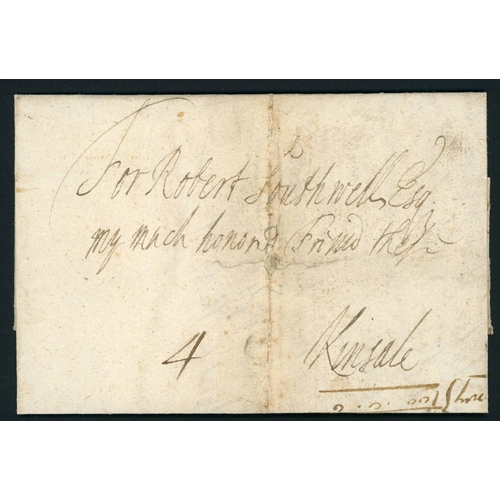 For Robert Southwell, Esq.
my mach honord Friend these
4
Kinsale